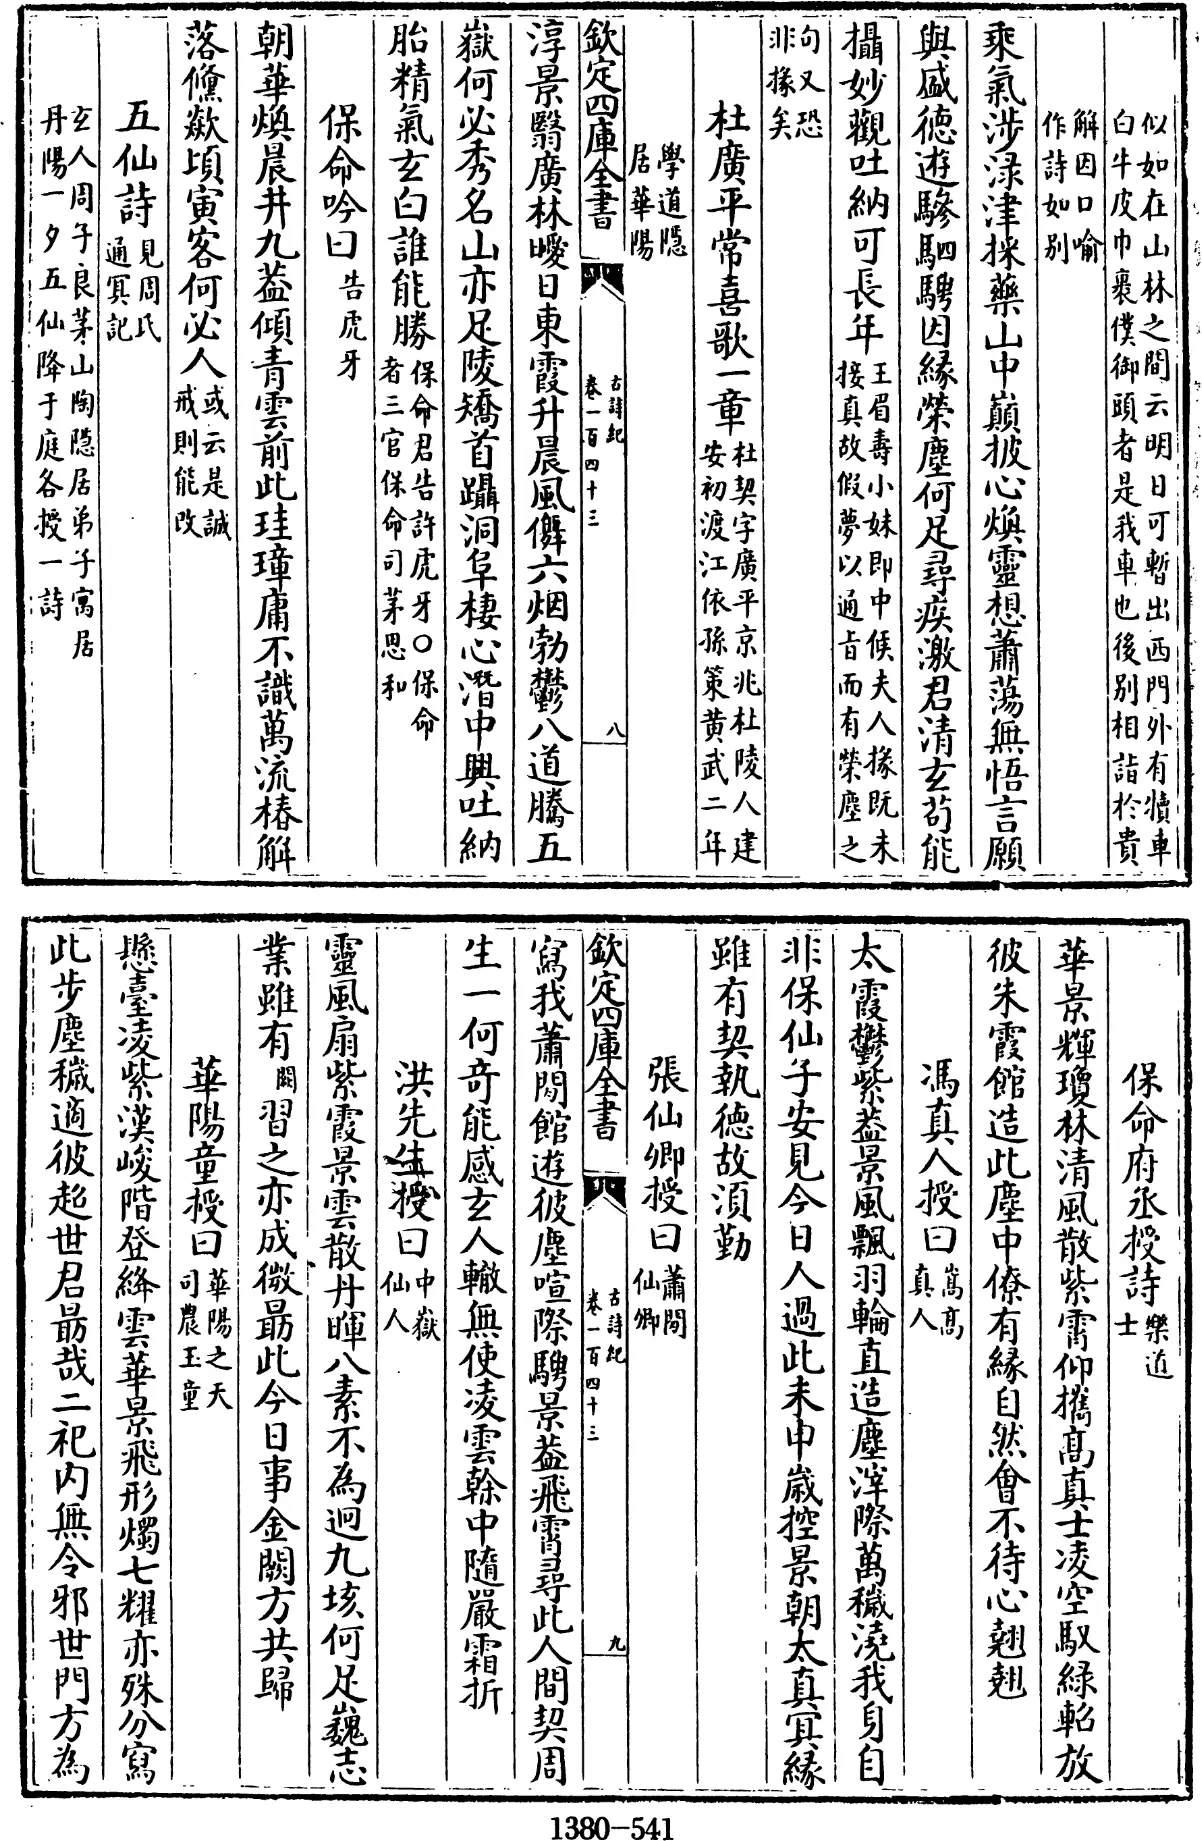 似如在山林之間云明日可暫出西門外有犢車
白牛皮巾裹僕御頭者是我車也後别相詣於貴
解因口喻
作詩如别
乘氣涉渌津採藥山中巔披心煥靈想蕭蕩無悟言願
與盛德遊驂駟騁因緣榮塵何足尋疾激君清玄苟能
攝妙觀吐納可長年
王眉壽小妹即中候夫人掾既未
接真故假夢以通旨而有榮塵之
句又恐
非掾矣
杜廣平常喜歌一章
杜契字廣平京兆杜陵人建
安初渡江依孫策黄武二年
學道隱
居華陽
欽定四庫全書
古詩紀
卷一百四十三
八
淳景翳廣林曖日東霞升晨風儛六烟勃鬱八道騰五
嶽何必秀名山亦足陵矯首躡洞阜棲心潛中興吐納
胎精氣玄白誰能勝
保命君告許虎牙○保命
者三官保命司茅思和
保命吟曰
告虎牙
朝華煥晨井九葢傾青雲前此珪璋庸不識萬流椿解
落儵歘頃寅客何必人
或云是誠
戒則能改
五仙詩
見周氏
通冥記
玄人周子良茅山陶隐居弟子寓居
丹陽一夕五仙降于庭各授一詩
保命府丞授詩
樂道
士
華景輝瓊林清風散紫霄仰攜高真士凌空馭綠軺放
彼朱霞館造此塵中僚有緣自然會不待心翹翹
馮真人授曰
嵩高
真人
太霞鬱紫葢景風飄羽輪直造塵滓際萬穢澆我身自
非保仙子安見今日人過此未申嵗控景朝太真冥緣
雖有契執德故須勤
張仙卿授曰
蕭閒
仙卿
欽定四庫全書
古詩紀
卷一百四十三
九
寫我蕭閒館遊彼塵喧際騁景葢飛霄尋此人間契周
生一何奇能感玄人轍無使凌雲榦中隨嚴霜折
洪先生授曰
中嶽
仙人
靈風扇紫霞景雲散丹暉八素不為迥九垓何足巍志
業雖有闕習之亦成微勗此今日事金闕方共歸
華陽童授曰
華陽之天
司農玉童
懸臺凌紫漢峻階登絳雲華景飛形燭七耀亦殊分寫
此步塵穢適彼起世君勗哉二祀内無令邪世門方為
1380-541